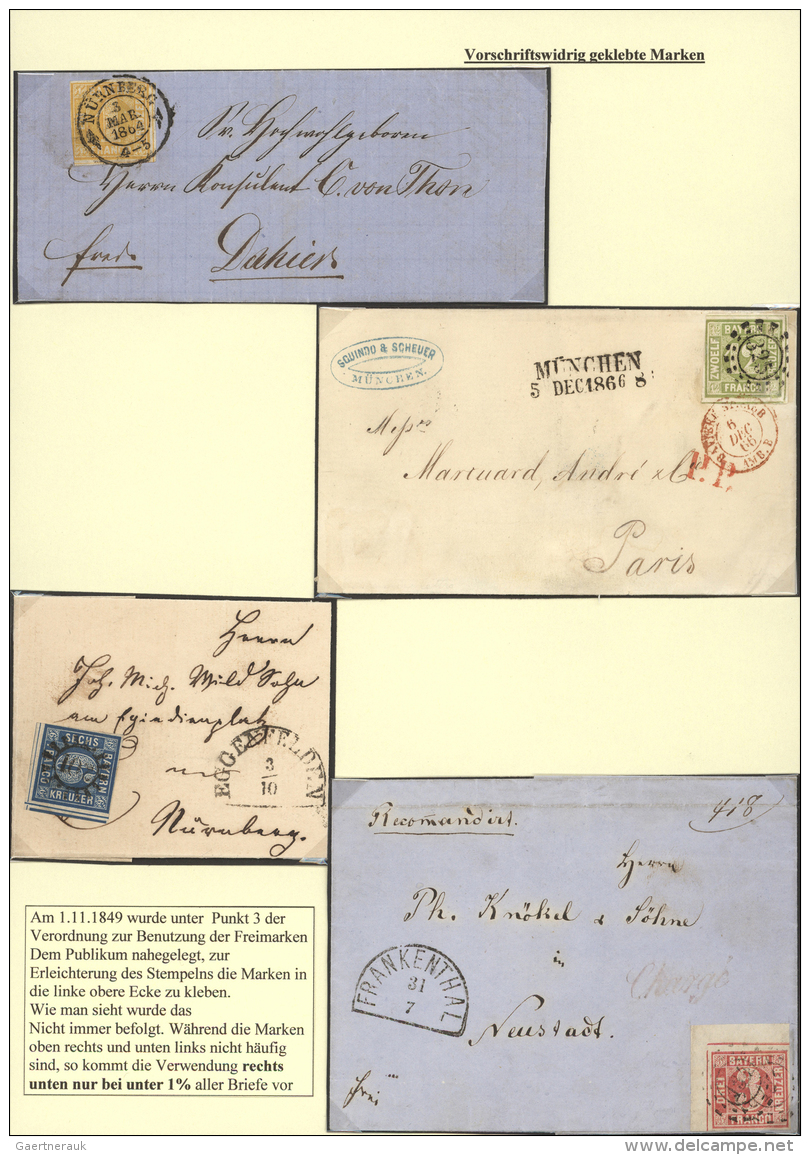 Vorschriftswidrig geklebte Marken
NÜRNBERG
3
MAR.
1864
4-5
Sr. Hochwohlgeboren
Herrn Konsulent C. von Thon
Dahier
SQUINDO & SCHEUER
MÜNCHEN.
MÜNCHEN
5 DEC 1866 8
BAYERN
ZWOELF
KREUZER
FRANCO
325
6
DEC
66
AMB. B
P.P.
Marcuard, André & Co
Paris
Herrn
Joh. Mich. Wild Sohn
am Egidienplatz
in
Nürnberg.
SECHS
BAYERN
KREUZER
FRANCO
EGGENFELDEN
3
10
Recomandirt.
418
Herrn
Ph. Knökel & Söhne
in
Neustadt.
Chargé
FRANKENTHAL
31
7
frei
BAYERN
DREI
KREUZER
FRANCO
Am 1.11.1849 wurde unter Punkt 3 der
Verordnung zur Benutzung der Freimarken
Dem Publikum nahegelegt, zur
Erleichterung des Stempelns die Marken in
die linke obere Ecke zu kleben.
Wie man sieht wurde das
Nicht immer befolgt. Während die Marken
oben rechts und unten links nicht häufig
sind, so kommt die Verwendung rechts
unten nur bei unter 1% aller Briefe vor
Gaertnerauk
delcampe.net